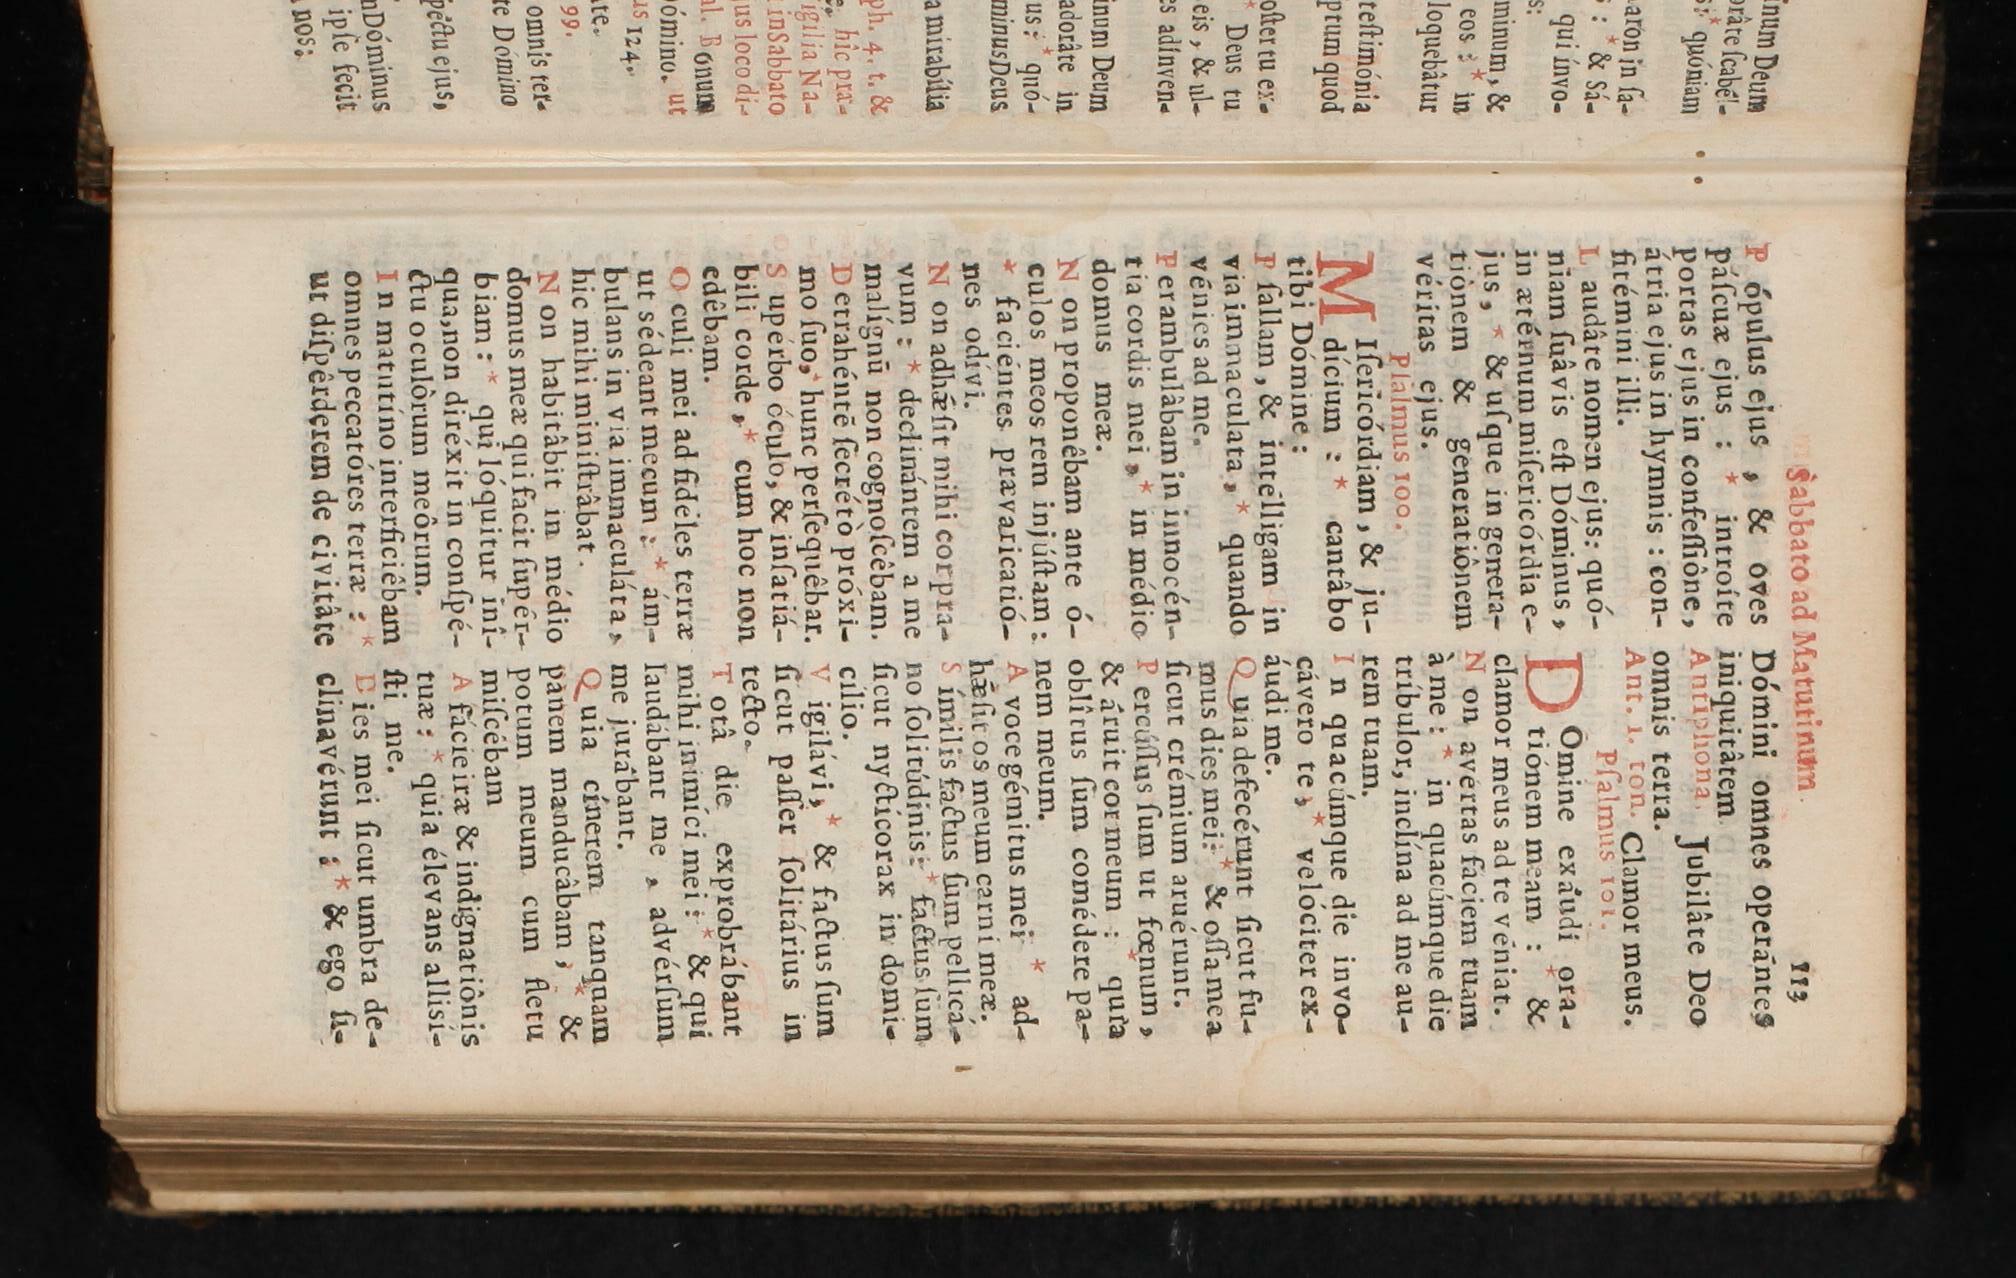 Sabbato ad Matutinum. 113
P ópulus ejus , & oves
páſcuæ ejus : * introíte
portas ejus in confeſſiône,
átria ejus in hymnis : con-
fitémini illi.
L audâte nomen ejus: quó-
niam ſuâvis eſt Dóminus ,
in ætérnum miſericórdia e-
jus , * & uſque in genera-
tiônem & generatiônem
véritas ejus.
Pſalmus 100.
M Iſericórdiam , & ju-
dícium : * cantâbo
tibi Dómine :
P ſallam , & intélligam in
via immaculata , * quando
vénies ad me.
P erambulâbam in innocén-
tia cordis mei , * in médio
domus meæ.
N on proponêbam ante ó-
culos meos rem injúſtam :
* faciéntes prævaricatió-
nes odívi.
N on adhǽſit mihi cor pra-
vum : * declinántem a me
malígnū non cognoſcêbam.
D etrahéntē ſecrétò próxi-
mo ſuo, * hunc perſequêbar.
S upérbo óculo, & inſatiá-
bili corde , * cum hoc non
edêbam.
O culi mei ad fidéles terræ
ut sédeant mecum : * ám-
bulans in via immaculáta ,
hic mihi miniſtrâbat.
N on habitâbit in médio
domus meæ qui facit ſupér-
biam : * qui lóquitur inî-
qua, non diréxit in conſpé-
ctu oculôrum meôrum.
I n matutíno interficiêbam
omnes peccatóres terræ : *
ut diſpêrderem de civitâte
Dómini omnes operántes
iniquitâtem
Antiphona. Jubilâte Deo
omnis terra.
Ant. 1. ton. Clamor meus.
Pſalmus 101.
D Omine exáudi ora-
tiónem meam : * &
clamor meus ad te véniat.
N on avértas fáciem tuam
à me : * in quacúmque die
tríbulor, inclína ad me au-
rem tuam.
I n quacúmque die invo-
cávero te , * velóciter ex-
áudi me.
Q uia defecérunt ſicut fu-
mus dies mei : * & oſſa mea
ſicut crémium aruérunt.
P ercúſſus ſum ut fœnum ,
& áruit cor meum : * quia
oblîtus ſum comédere pa-
nem meum.
A voce gémitus mei * ad-
hǽſit os meum carni meæ.
S ímilis factus ſum pellicá-
no ſolitúdinis : * factus ſum
ſicut nycticorax in domi-
cílio.
V igilávi , * & factus ſum
ſicut paſſer ſolitárius in
tecto.
T otâ die exprobrábant
mihi inimíci mei : * & qui
laudábant me , advérſum
me jurâbant.
Q uia cínerem tanquam
panem manducâbam , * &
potum meum cum fletu
miſcêbam
A fácie iræ & indignatiônis
tuæ : * quia élevans allisí-
ſti me.
D ies mei ſicut umbra de-
clinavérunt : * & ego ſi-